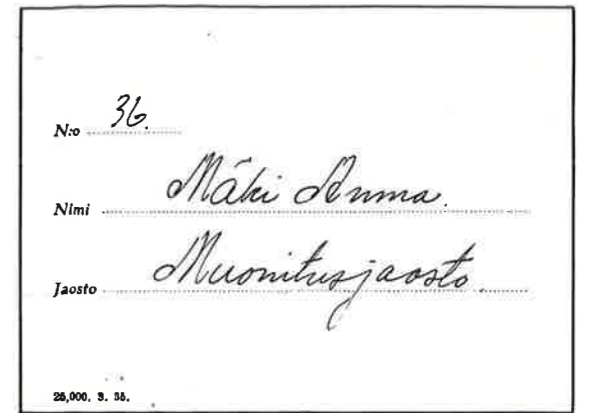 N:o 36.
Nimi Mäki Anna.
Jaosto Muonitusjaosto.
25,000. 3. 35.